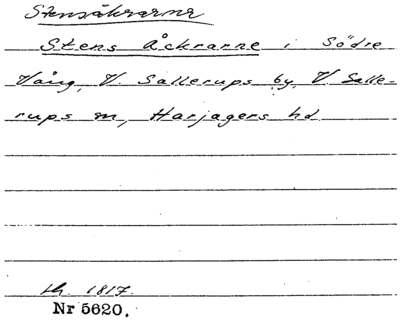 Stensåkrarna
Stens Åckrarne i Södre
Vång, V. Sallerups by, V. Salle-
rups sn, Harjagers hd
lh. 1817.
Nr 5620.